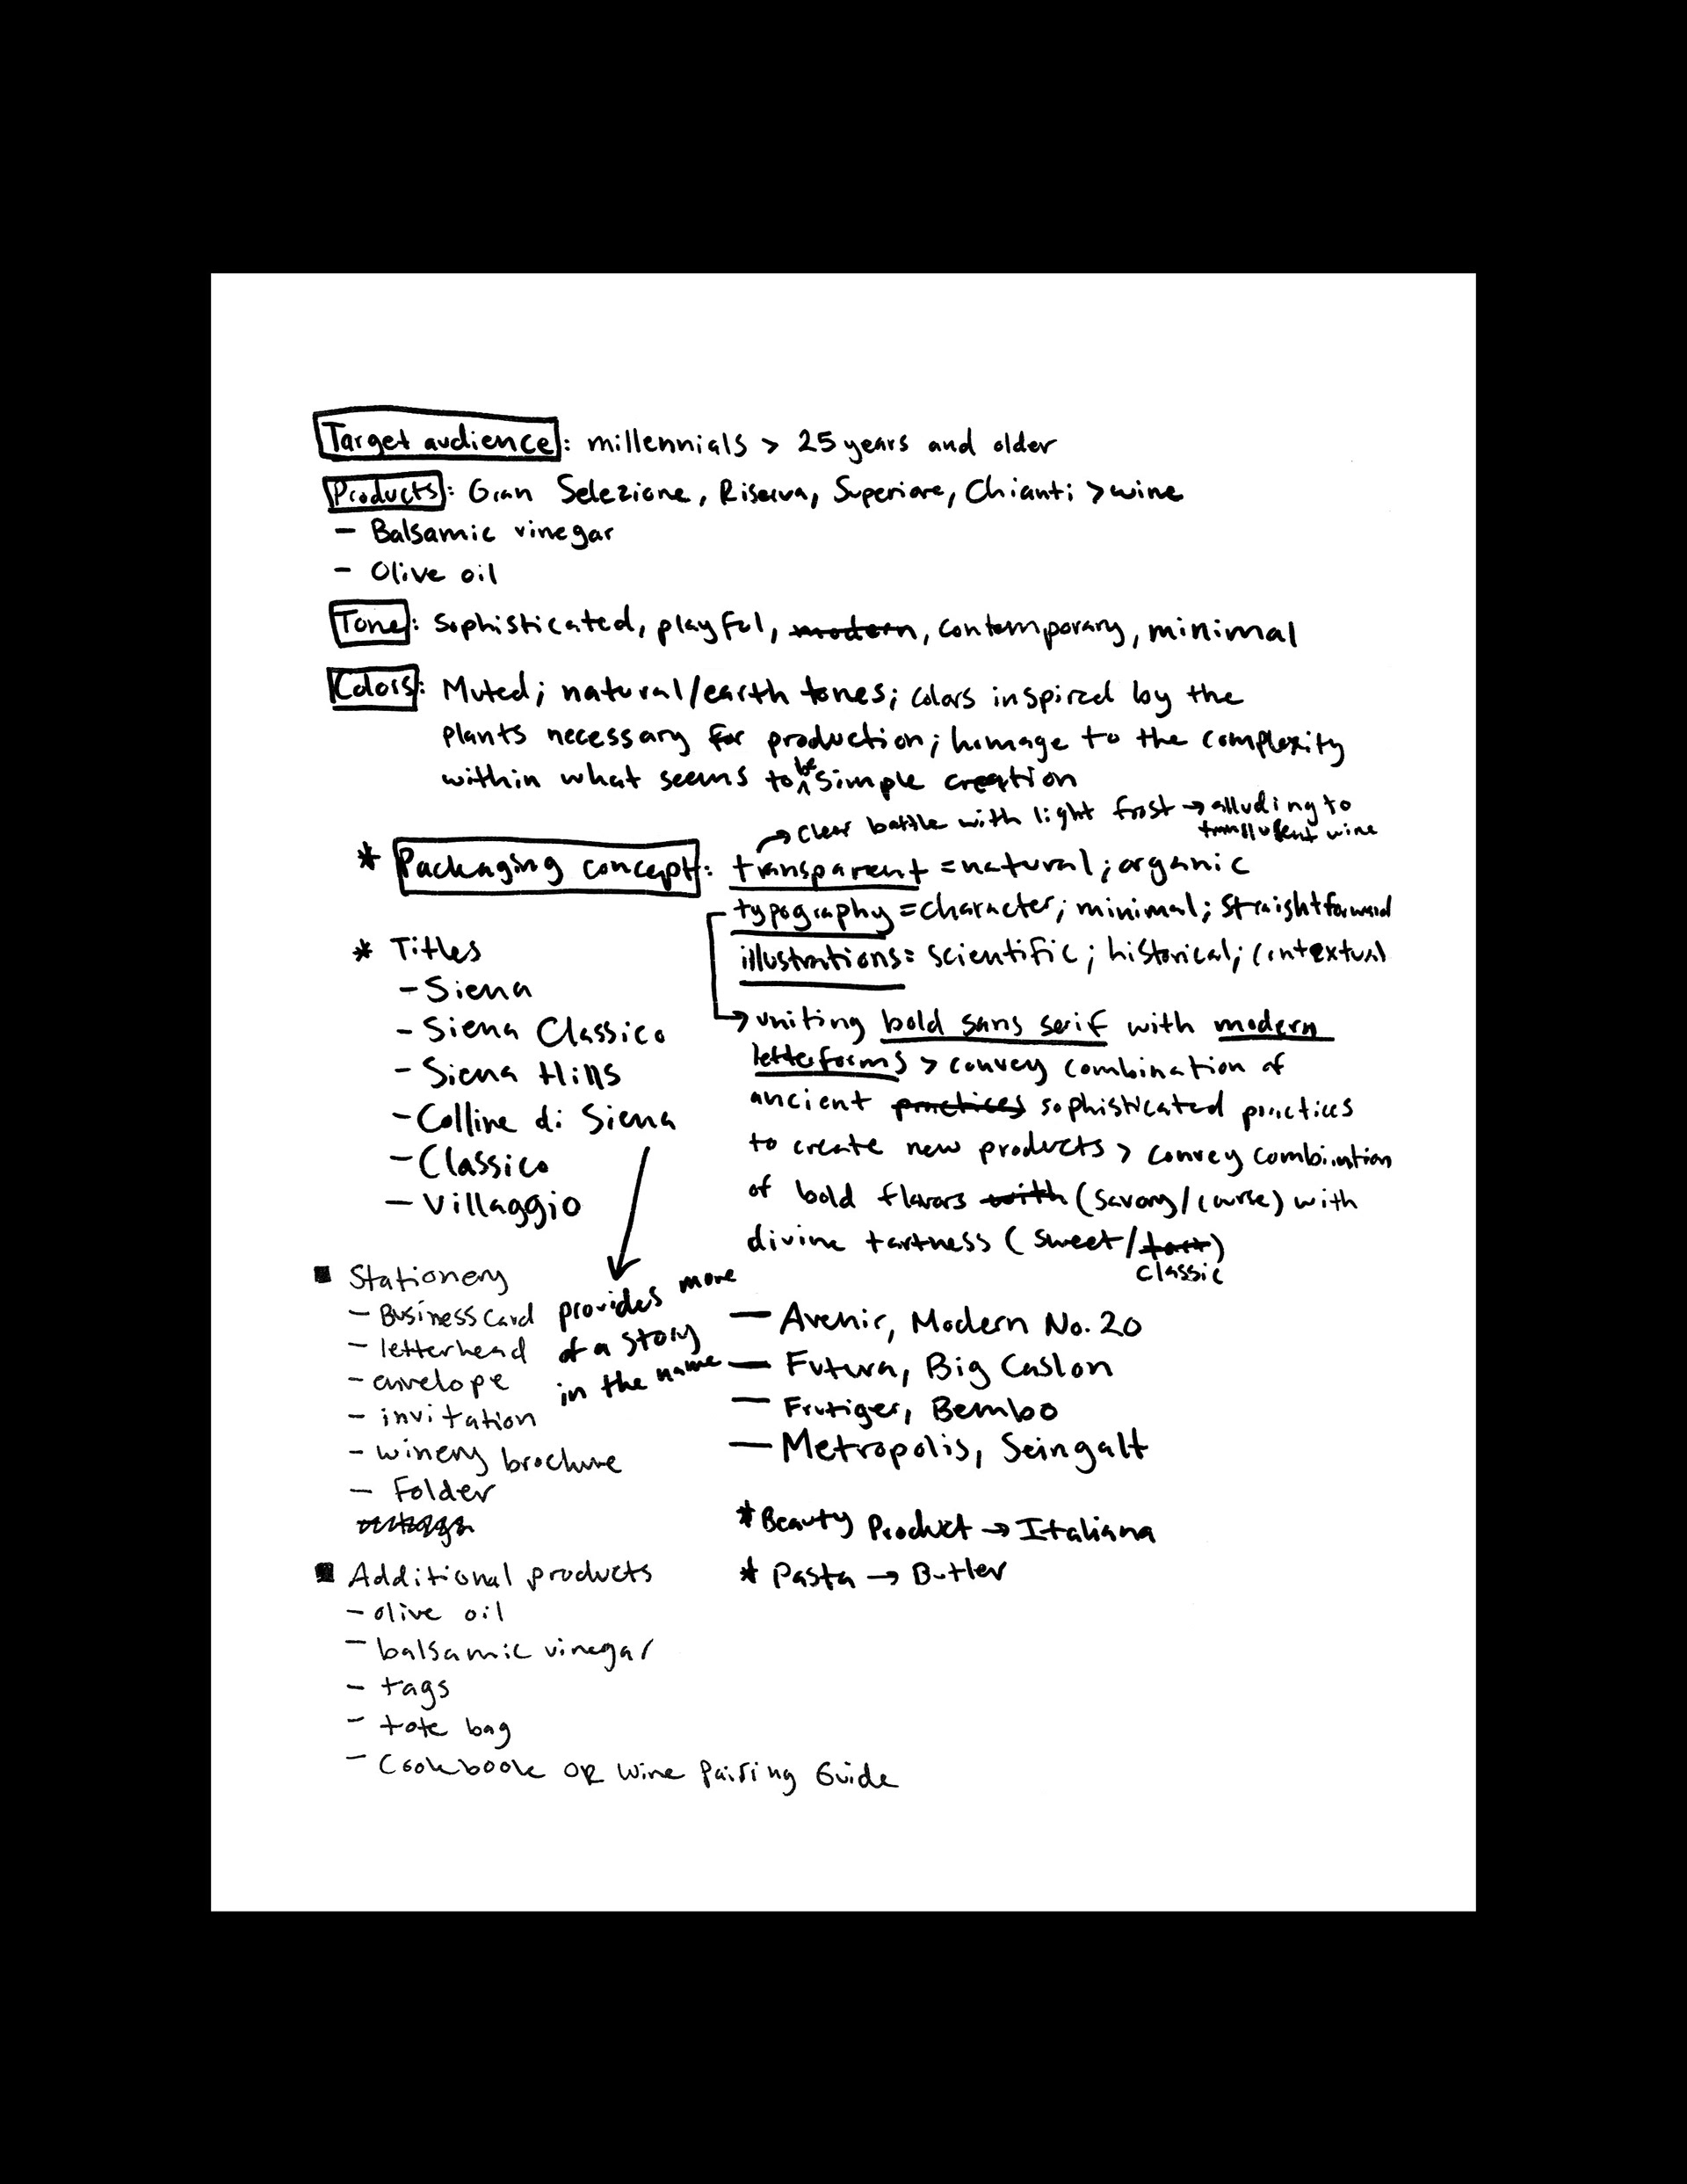 Target audience: millennials > 25 years and older
Products: Gran Selezione, Riserva, Superiore, Chianti > wine
- Balsamic vinegar
- Olive oil
Tone: sophisticated, playful, modern, contemporary, minimal
Colors: Muted; natural/earth tones; colors inspired by the
plants necessary for production; homage to the complexity
within what seems to be simple creation
→ clear bottle with light frost → alluding to
translucent wine
* Packaging concept: transparent = natural; organic
typography = character; minimal; straightforward
illustrations: scientific; historical; contextual
→ uniting bold sans serif with modern
letterforms > convey combination of
ancient practices sophisticated practices
to create new products > convey combination
of bold flavors with (savory/course) with
divine tartness (sweet/tart)
classic
* Titles
- Siena
- Siena Classico
- Siena Hills
- Colline di Siena
- Classico
- Villaggio
provides more
of a story
in the name
■ Stationery
- Business card
- letterhead
- envelope
- invitation
- winery brochure
- Folder
— Avenir, Modern No. 20
— Futura, Big Caslon
— Frutiger, Bembo
— Metropolis, Seingalt
* Beauty Product → Italiana
* Pasta → Butler
■ Additional products
- olive oil
- balsamic vinegar
- tags
- tote bag
- Cookbook OR Wine Pairing Guide